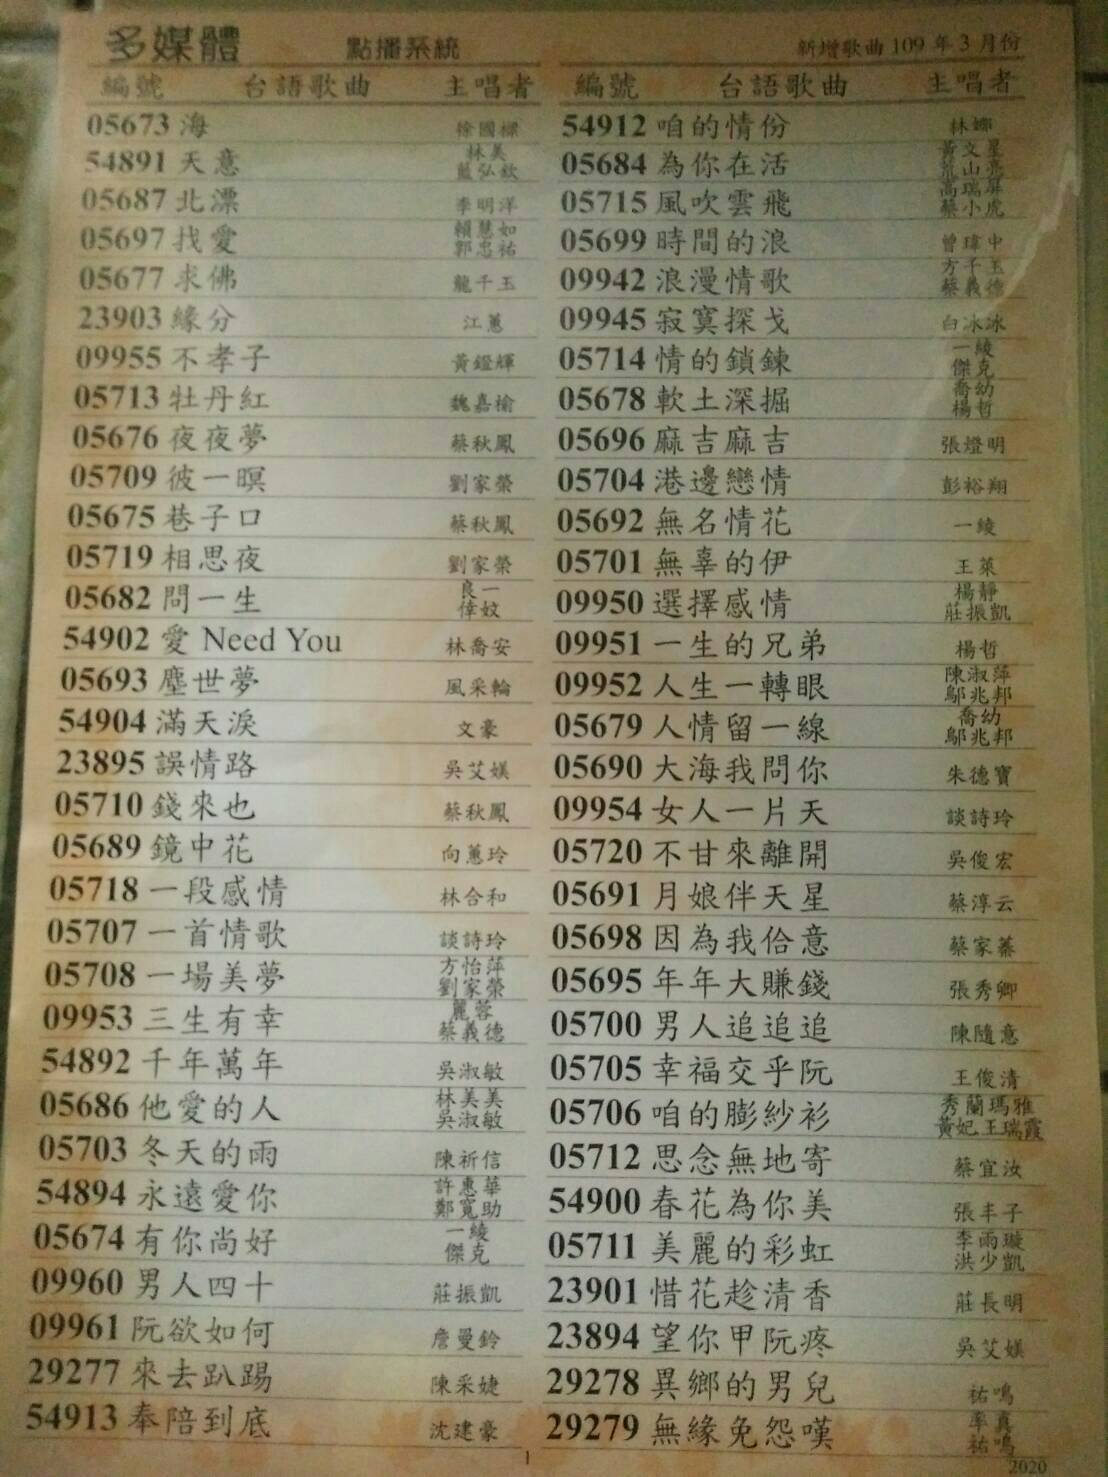 多媒體 點播系統 新增歌曲 109 年 3 月份
編號 台語歌曲 主唱者
05673 海 徐國樑
54891 天意 林美 藍弘欽
05687 北漂 李明洋
05697 找愛 賴慧如 郭忠祐
05677 求佛 龍千玉
23903 緣分 江蕙
09955 不孝子 黃鐙輝
05713 牡丹紅 魏嘉榆
05676 夜夜夢 蔡秋鳳
05709 彼一暝 劉家榮
05675 巷子口 蔡秋鳳
05719 相思夜 劉家榮
05682 問一生 良一 倖姣
54902 愛 Need You 林喬安
05693 塵世夢 風采輪
54904 滿天淚 文豪
23895 誤情路 吳艾媄
05710 錢來也 蔡秋鳳
05689 鏡中花 向蕙玲
05718 一段感情 林合和
05707 一首情歌 談詩玲
05708 一場美夢 方怡萍 劉家榮
09953 三生有幸 麗蓉 蔡義德
54892 千年萬年 吳淑敏
05686 他愛的人 林美美 吳淑敏
05703 冬天的雨 陳祈信
54894 永遠愛你 許惠華 鄭寬助
05674 有你尚好 一綾 傑克
09960 男人四十 莊振凱
09961 阮欲如何 詹曼鈴
29277 來去趴踢 陳采婕
54913 奉陪到底 沈建豪
編號 台語歌曲 主唱者
54912 咱的情份 林娜
05684 為你在活 黃文星 荒山亮
05715 風吹雲飛 高瑞屏 蔡小虎
05699 時間的浪 曾瑋中
09942 浪漫情歌 方千玉 蔡義德
09945 寂寞探戈 白冰冰
05714 情的鎖鍊 一綾 傑克
05678 軟土深掘 喬幼 楊哲
05696 麻吉麻吉 張燈明
05704 港邊戀情 彭裕翔
05692 無名情花 一綾
05701 無辜的伊 王萊
09950 選擇感情 楊靜 莊振凱
09951 一生的兄弟 楊哲
09952 人生一轉眼 陳淑萍 鄔兆邦
05679 人情留一線 喬幼 鄔兆邦
05690 大海我問你 朱德寶
09954 女人一片天 談詩玲
05720 不甘來離開 吳俊宏
05691 月娘伴天星 蔡淳云
05698 因為我佮意 蔡家蓁
05695 年年大賺錢 張秀卿
05700 男人追追追 陳隨意
05705 幸福交乎阮 王俊清
05706 咱的膨紗衫 秀蘭瑪雅 黃妃 王瑞霞
05712 思念無地寄 蔡宜汝
54900 春花為你美 張丰子
05711 美麗的彩虹 李雨璇 洪少凱
23901 惜花趁清香 莊長明
23894 望你甲阮疼 吳艾媄
29278 異鄉的男兒 祐鳴
29279 無緣免怨嘆 率真 祐鳴
1
2020